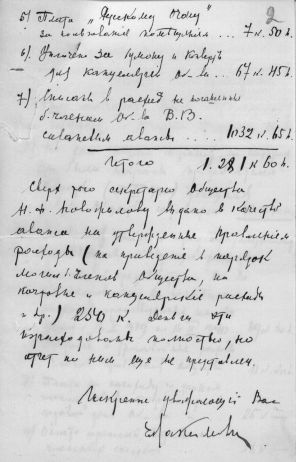 2
5) Плата „Русскому Дому"
за пользование помещением ... 7 к. 50 h.
6) Уплачено за бумагу и
для канцелярии О-ва ... 67 к. 45 h.
7) Списать в расход не
б. членом О-ва В.В.
авансы .... 1032 к. 65 h.
Итого 1. 281 к 60 h.
Сверх того секретарю Общества
Н. Ф. Новожилову выдано в качестве
аванса на утвержденные Правлением
расходы (на приведение в порядок
могил членов Общества, на
и канцелярские расходы
и др.) 250 к. Деньги эти
израсходованы полностью, но
отчет по ним еще не представлен.
Искренне уважающий Вас